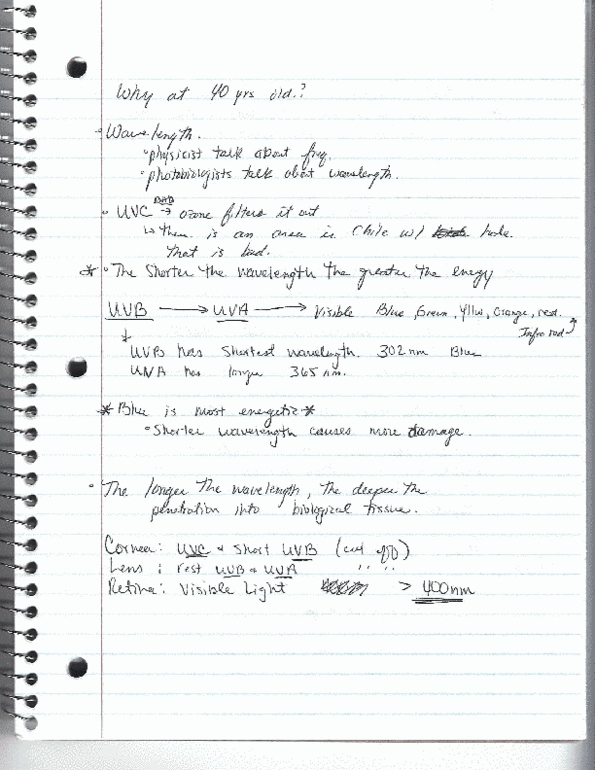 Why at 40 yrs old.?
• Wavelength.
• physicist talk about freq.
• photobiologists talk about wavelength.
• UVC → ozone filters it out
↳ there is an area in Chile w/ hole.
that is bad.
* • The shorter the wavelength the greater the energy
UVB → UVA → Visible Blue, Green, Yllw, Orange, red.
Infra red
↓
UVB has shortest wavelength. 302nm Blue
UVA has longer 365 nm.
* Blue is most energetic *
• Shorter wavelength causes more damage.
• The longer the wavelength, the deeper the
penetration into biological tissue.
Cornea: UVC & short UVB (cut off)
Lens : rest UVB & UVA " "
Retina: Visible Light > 400nm